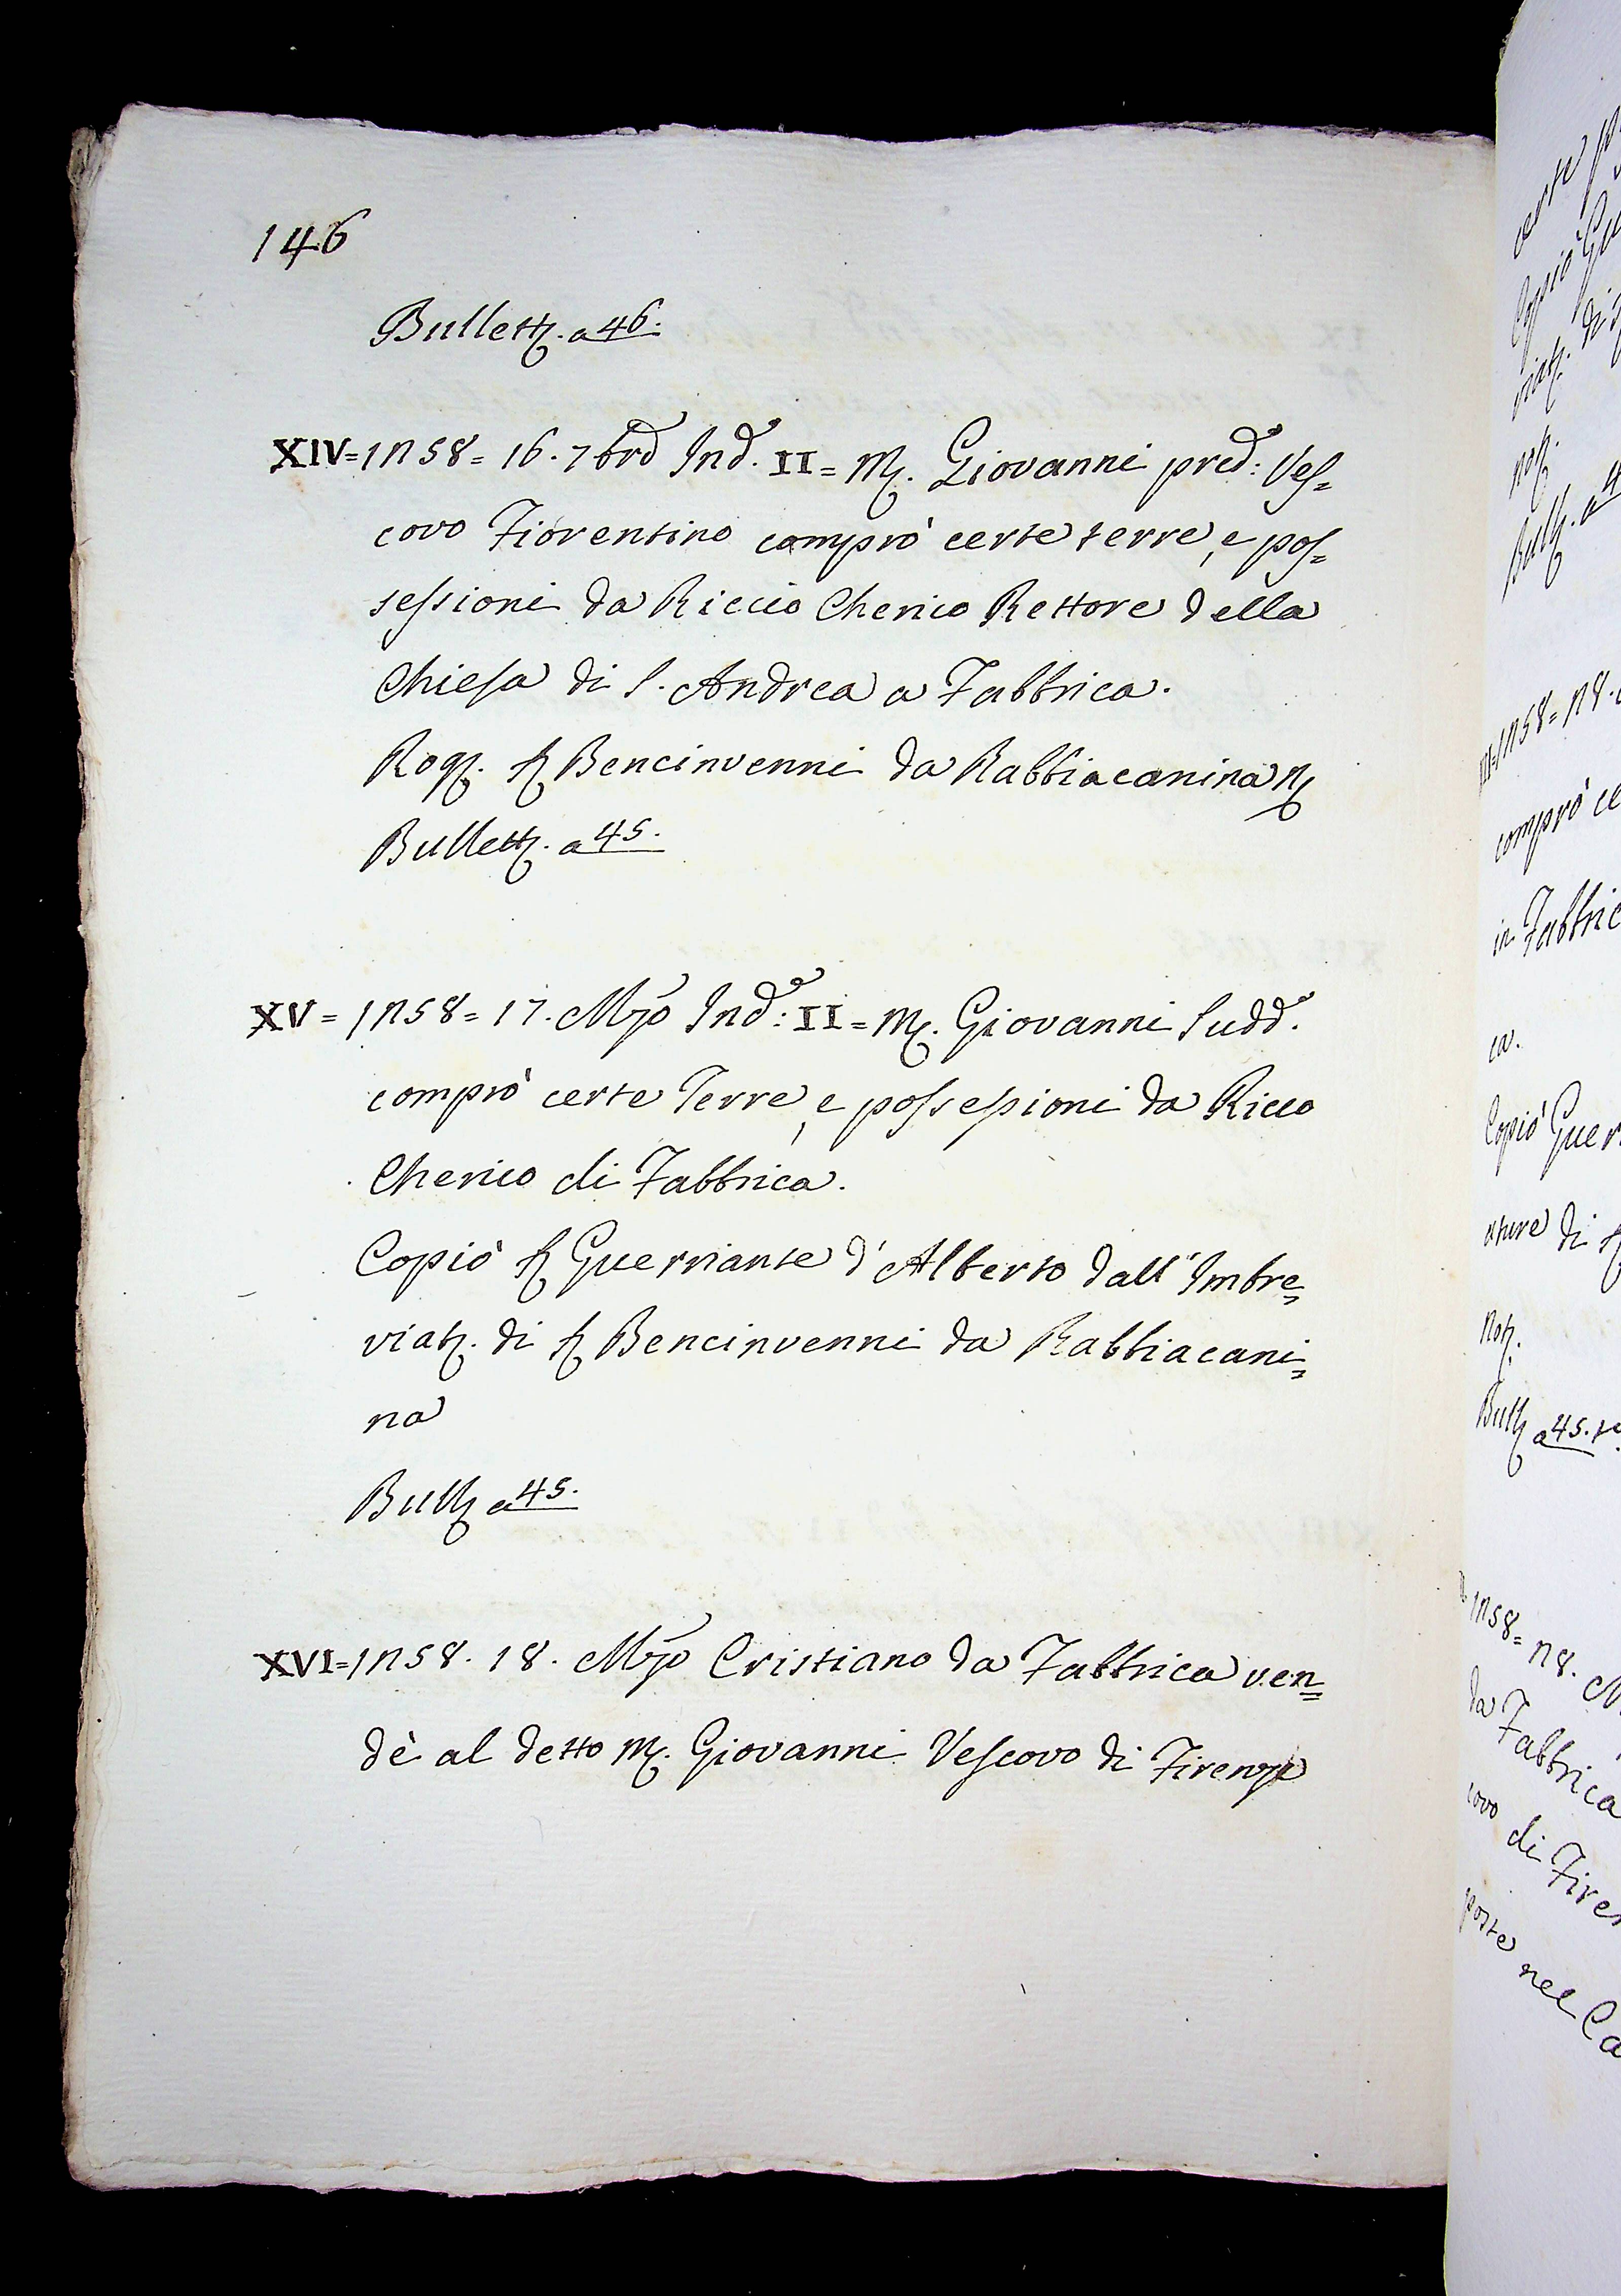 146
Bullett. a 46.
XIV=1258= 16. 7bre Ind. II= M. Giovanni pred.o: Ves=
covo Fiorentino comprò certe terre, e pos=
sessioni da Riccio Cherico Rettore della
Chiesa di S. Andrea a Fabbrica.
Rog. S. Bencinvenni da Rabbiacanina N.
Bullett. a 45.
XV= 1258= 17. Mzo Ind.e: II= M. Giovanni Sudd.o
comprò certe Terre, e possessioni da Ricco
Cherico di Fabbrica.
Copiò S. Guerriante d'Alberto dall'Imbre=
viat. di S. Bencinvenni da Rabbiacani=
na
Bull. a 45.
XVI=1258. 18. Mzo Cristiano da Fabbrica ven=
dè al detto M. Giovanni Vescovo di Firenze
certe
Copiò Gu
viat. di
not.
Bull. a 4
1258= 28.
comprò ce
in Fabbric
ca.
Copiò Guer
ature di S.
Not.
Bull. a 45.
1258= 28. M
da Fabbrica
covo di Firen
poste nel Ca